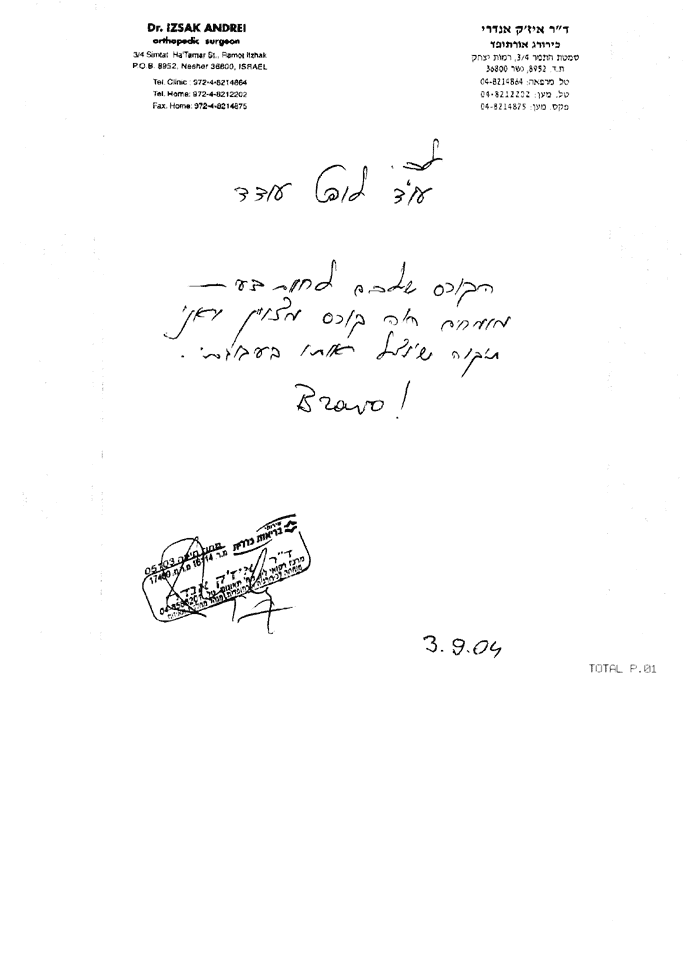 Dr. IZSAK ANDREI
orthopedic surgeon
3/4 Simtat Ha'Tamar St., Ramot Itzhak
P.O.B. 8952, Nesher 36800, ISRAEL
Tel. Clinic : 972-4-8214864
Tel. Home: 972-4-8212202
Fax. Home: 972-4-8214875
ד״ר איז׳ק אנדרי
כירורג אורתופד
סמטת התמר 3/4, רמות יצחק
ת.ד. 8952, נשר 36800
טל. מרפאה: 04-8214864
טל. מען: 04-8212202
פקס. מען: 04-8214875
לכ׳
עו״ד עודד
הקורס שלכם
מומחים היה קורס מצוין ואני
מקוה אותו בעבודתי.
Bravo!
שירותי
בריאות כללית
מחוז חיפה 05103
מ.ר 16114 מ.מ. 17460
ד״ר איז׳ק
3.9.04
TOTAL P.01